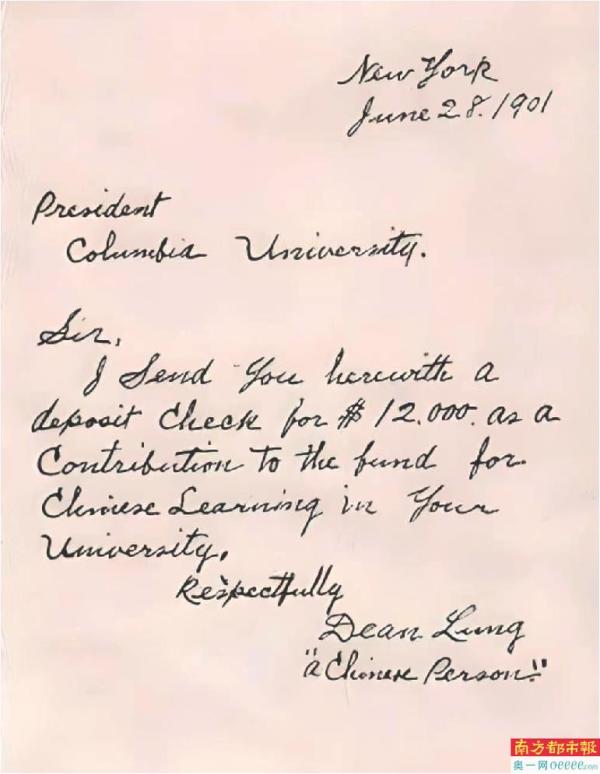 New York
June 28. 1901
President
Columbia University.
Sir,
I Send You herewith a
deposit Check for $ 12.000. as a
Contribution to the fund for
Chinese Learning in Your
University.
Respectfully
Dean Lung
"a Chinese Person."
南方都市報
奥一网oeeee.com